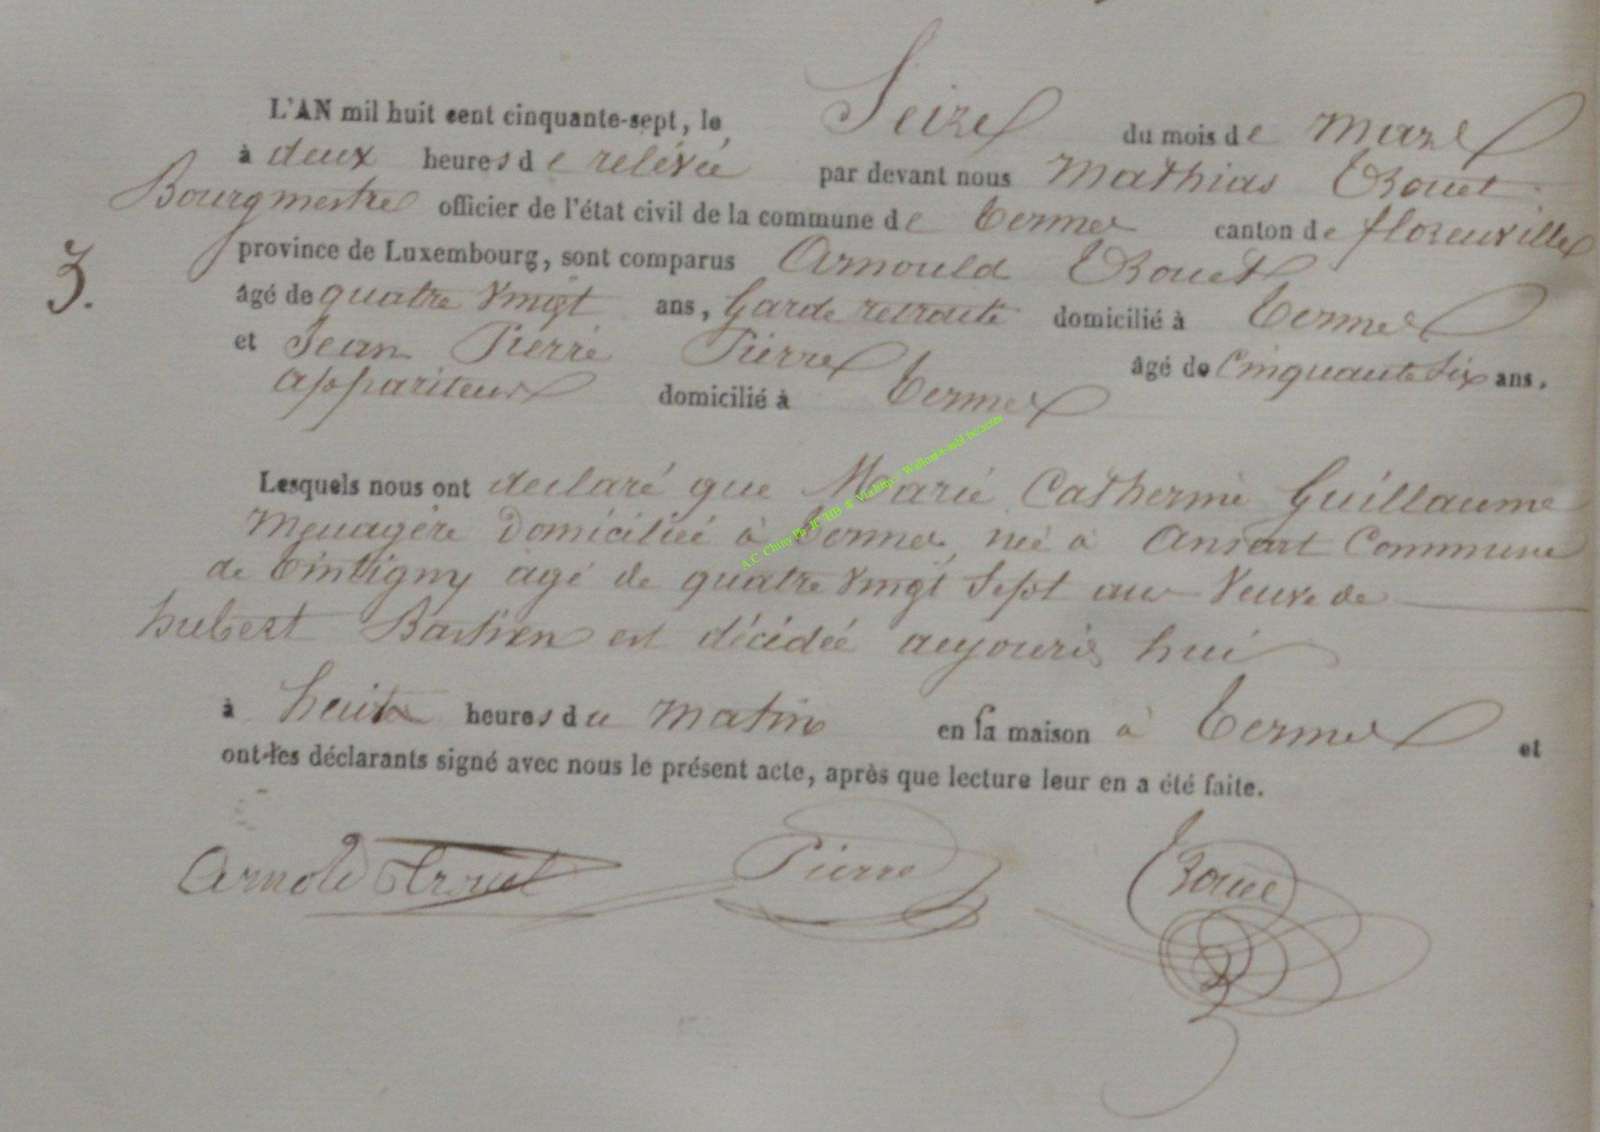 L'AN mil huit cent cinquante-sept, le Seize du mois de Mars
à deux heures de relévée par devant nous Mathias
Bourgmestre officier de l'état civil de la commune de Termes canton de florenville
province de Luxembourg, sont comparus Arnould
3.
âgé de quatre vingt ans, Garde retraité domicilié à Termes
et Jean Pierre Pierre âgé de Cinquante six ans.
appariteur domicilié à Termes
Lesquels nous ont declaré que Marie Catherine Guillaume
Menagère Domiciliée à Termes, née à Ansart Commune
de Tintigny agé de quatre vingt Sept ans Veuve de
hubert Bastien est décédée aujourd hui
à huit heures du matin en sa maison à Termes et
ont les déclarants signé avec nous le présent acte, après que lecture leur en a été faite.
Arnold Pierre